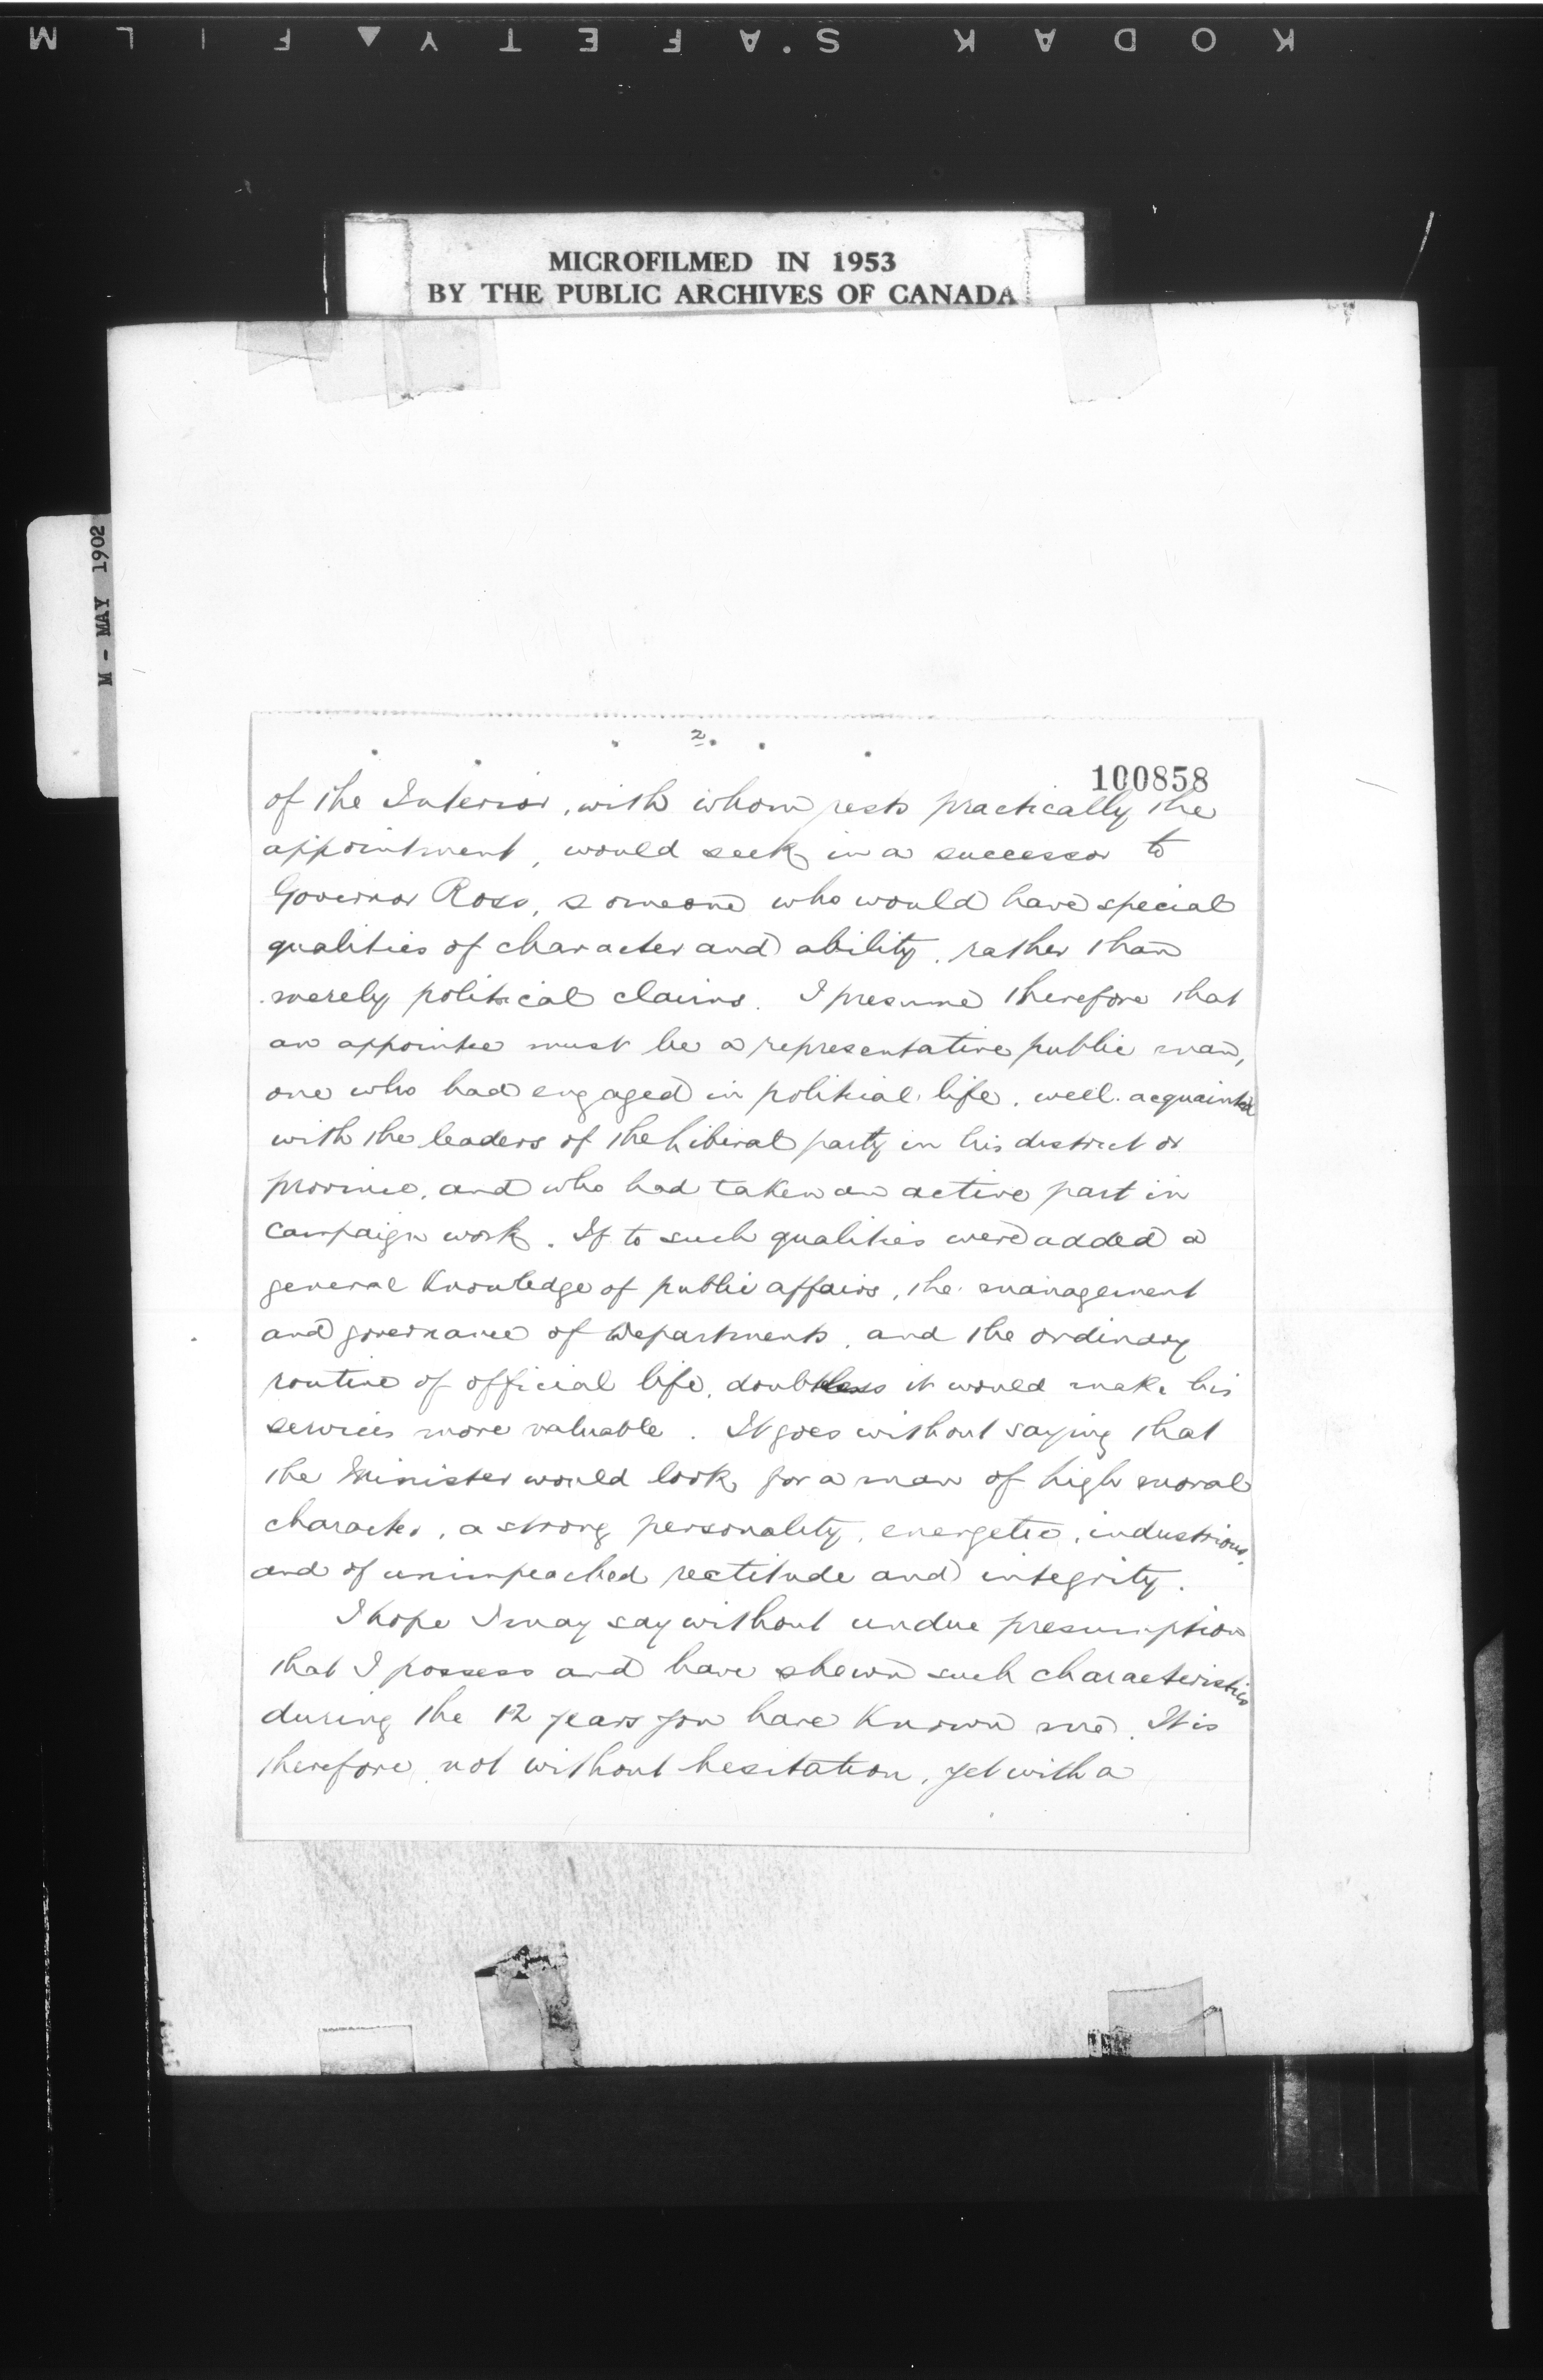 KODAK SAFETY FILM
MICROFILMED IN 1953
BY THE PUBLIC ARCHIVES OF CANADA
M - MAY 1902
2.
100858
of the Interior, with whom rests practically the
appointment, would seek in a successor to
Governor Ross, someone who would have special
qualities of character and ability, rather than
merely political claims. I presume therefore that
an appointee must be a representative public man,
one who had engaged in political life, well acquainted
with the leaders of the Liberal party in his district or
province, and who had taken an active part in
campaign work. If to such qualities were added a
general knowledge of public affairs, the management
and governance of Departments, and the ordinary
routine of official life, doubtless it would make his
services more valuable. It goes without saying that
the Minister would look for a man of high moral
character, a strong personality, energetic, industrious,
and of unimpeached rectitude and integrity.
I hope I may say without undue presumption
that I possess and have shewn such characteristics
during the 12 years you have known me. It is
therefore, not without hesitation, yet with a